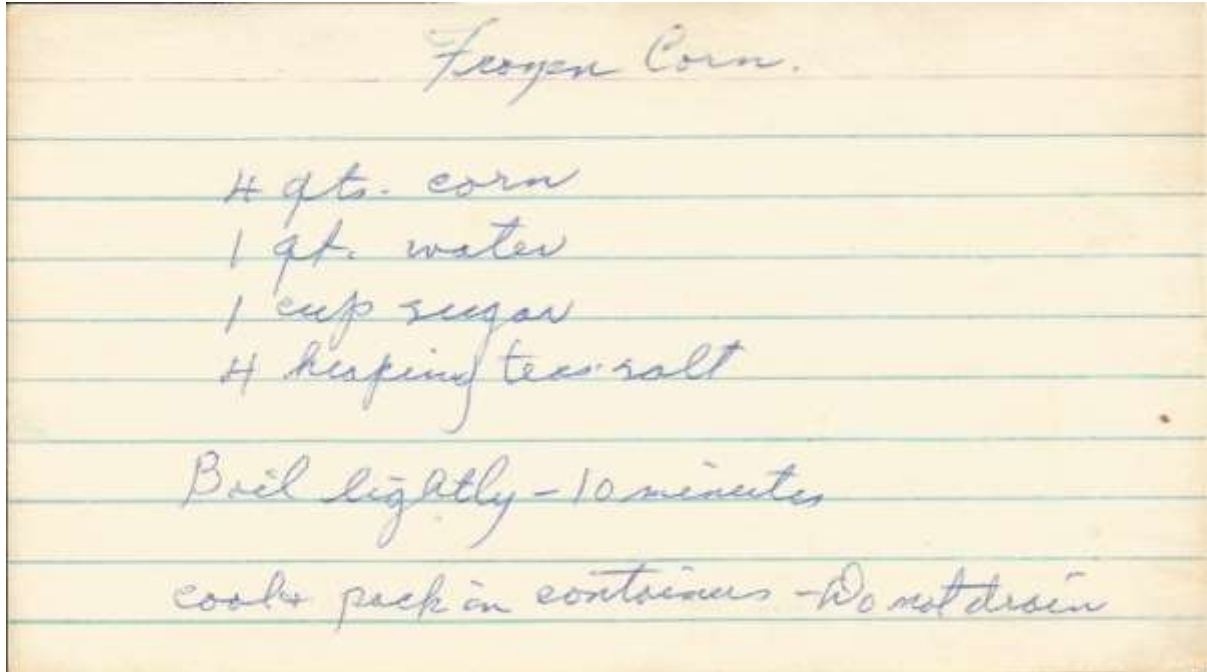 Frozen Corn.
4 qts. corn
1 qt. water
1 cup sugar
4 heaping teas. salt
Boil lightly - 10 minutes
cool & pack in containers - Do not drain